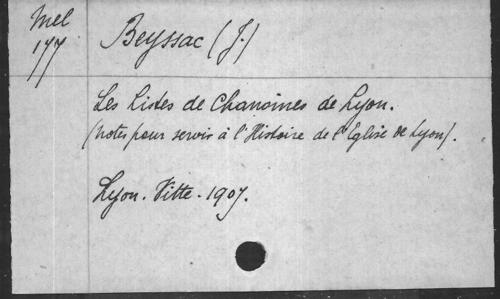 Mel
177
Beyssac (J.)
Les Listes de Chanoines de Lyon.
(Notes pour servir à l'Histoire de l'Eglise de Lyon).
Lyon. Vitte. 1907.